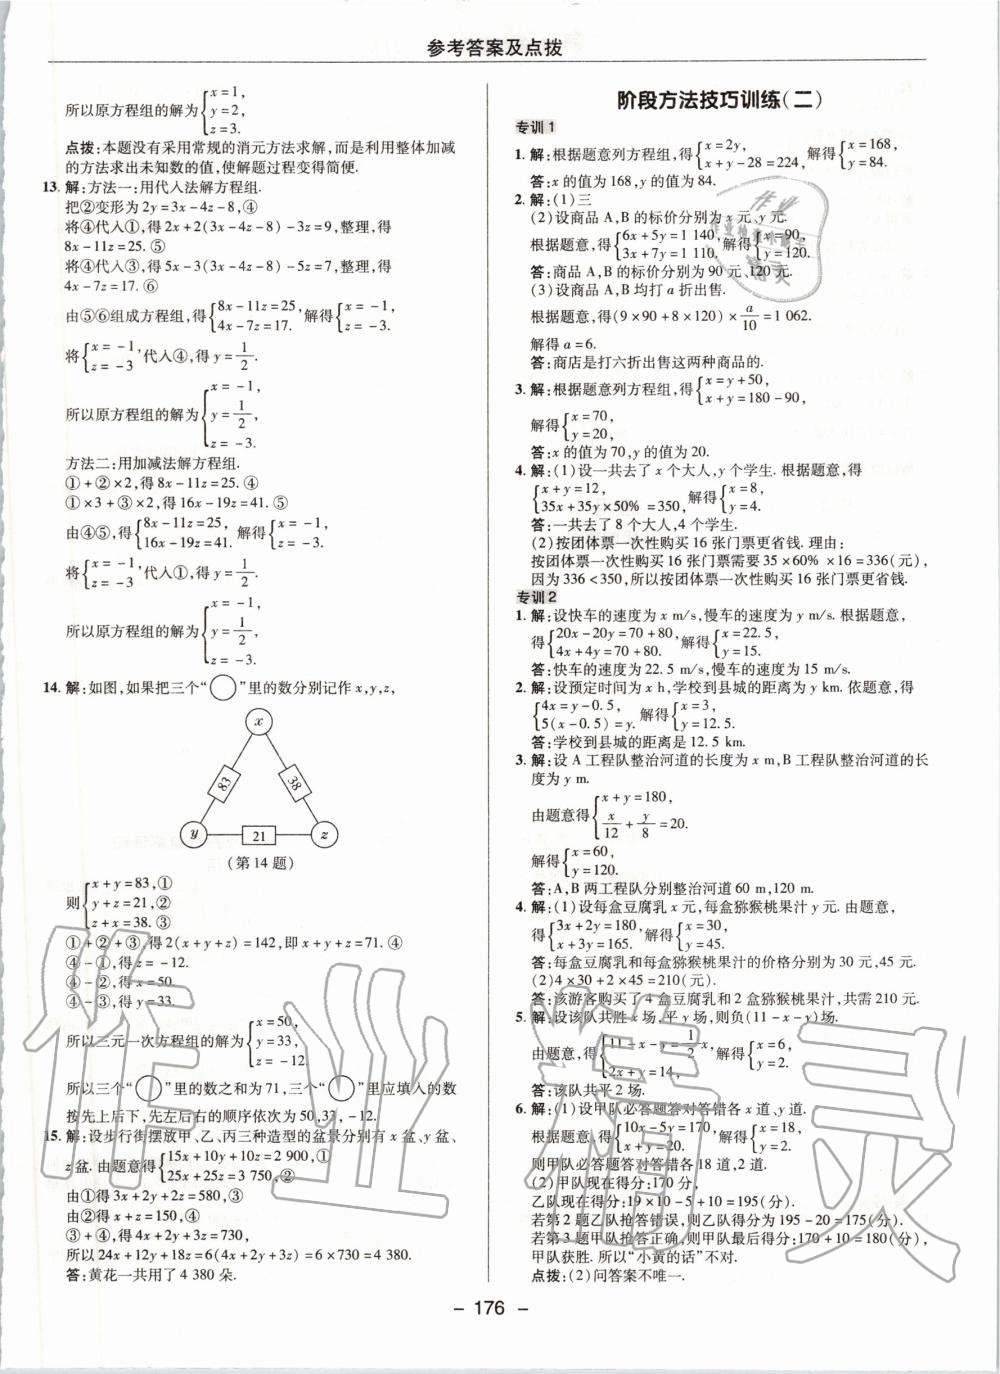 参考答案及点拨
所以原方程组的解为{x=1, y=2, z=3.
点拨:本题没有采用常规的消元方法求解,而是利用整体加减
的方法求出未知数的值,使解题过程变得简便.
13. 解:方法一:用代入法解方程组.
把②变形为2y=3x-4z-8,④
将④代入①,得2x+2(3x-4z-8)-3z=9,整理,得
8x-11z=25. ⑤
将④代入③,得5x-3(3x-4z-8)-5z=7,整理,得
4x-7z=17. ⑥
由⑤⑥组成方程组,得{8x-11z=25, 4x-7z=17. 解得{x=-1, z=-3.
将{x=-1, z=-3代入④,得y=1/2.
所以原方程组的解为{x=-1, y=1/2, z=-3.
方法二:用加减法解方程组.
①+②×2,得8x-11z=25. ④
①×3+③×2,得16x-19z=41. ⑤
由④⑤,得{8x-11z=25, 16x-19z=41. 解得{x=-1, z=-3.
将{x=-1, z=-3代入①,得y=1/2.
所以原方程组的解为{x=-1, y=1/2, z=-3.
14. 解:如图,如果把三个“○”里的数分别记作x,y,z,
x
83
38
y
21
z
(第14题)
则{x+y=83,① y+z=21,② z+x=38. ③
①+②+③,得2(x+y+z)=142,即x+y+z=71. ④
④-①,得z=-12.
④-②,得x=50.
④-③,得y=33.
所以三元一次方程组的解为{x=50, y=33, z=-12.
所以三个“○”里的数之和为71,三个“○”里应填入的数
按先上后下,先左后右的顺序依次为50,33,-12.
15. 解:设步行街摆放甲、乙、丙三种造型的盆景分别有x盆、y盆、
z盆. 由题意得{15x+10y+10z=2 900,① 25x+25z=3 750,②
由①得3x+2y+2z=580,③
由②得x+z=150,④
③+④,得4x+2y+3z=730,
所以24x+12y+18z=6(4x+2y+3z)=6×730=4 380.
答:黄花一共用了4 380朵.
阶段方法技巧训练(二)
专训1
1. 解:根据题意列方程组,得{x=2y, x+y-28=224, 解得{x=168, y=84.
答:x的值为168,y的值为84.
2. 解:(1)三
(2)设商品A,B的标价分别为x元、y元.
根据题意,得{6x+5y=1 140, 3x+7y=1 110, 解得{x=90, y=120.
答:商品A,B的标价分别为90元、120元.
(3)设商品A,B均打a折出售.
根据题意,得(9×90+8×120)×a/10=1 062.
解得a=6.
答:商店是打六折出售这两种商品的.
3. 解:根据题意列方程组,得{x=y+50, x+y=180-90,
解得{x=70, y=20,
答:x的值为70,y的值为20.
4. 解:(1)设一共去了x个大人,y个学生. 根据题意,得
{x+y=12, 35x+35y×50%=350, 解得{x=8, y=4.
答:一共去了8个大人,4个学生.
(2)按团体票一次性购买16张门票更省钱. 理由:
按团体票一次性购买16张门票需要35×60%×16=336(元),
因为336<350,所以按团体票一次性购买16张门票更省钱.
专训2
1. 解:设快车的速度为x m/s,慢车的速度为y m/s. 根据题意,
得{20x-20y=70+80, 4x+4y=70+80. 解得{x=22.5, y=15.
答:快车的速度为22.5 m/s,慢车的速度为15 m/s.
2. 解:设预定时间为x h,学校到县城的距离为y km. 依题意,得
{4x=y-0.5, 5(x-0.5)=y. 解得{x=3, y=12.5.
答:学校到县城的距离是12.5 km.
3. 解:设A工程队整治河道的长度为x m,B工程队整治河道的长
度为y m.
由题意得{x+y=180, x/12+y/8=20.
解得{x=60, y=120.
答:A,B两工程队分别整治河道60 m,120 m.
4. 解:(1)设每盒豆腐乳x元,每盒猕猴桃果汁y元. 由题意,
得{3x+2y=180, x+3y=165. 解得{x=30, y=45.
答:每盒豆腐乳和每盒猕猴桃果汁的价格分别为30元,45元.
(2)4×30+2×45=210(元).
答:该游客购买了4盒豆腐乳和2盒猕猴桃果汁,共需210元.
5. 解:设该队共胜x场,平y场,则负(11-x-y)场.
由题意,得{11-x-y=1/2x, 2x+y=14, 解得{x=6, y=2.
答:该队共平2场.
6. 解:(1)设甲队必答题答对答错各x道、y道.
根据题意,得{10x-5y=170, x+y=20. 解得{x=18, y=2.
则甲队必答题答对答错各18道,2道.
(2)甲队现在得分:170分,
乙队现在得分:19×10-5+10=195(分).
若第2题乙队抢答错误,则乙队得分变为195-20=175(分).
若第3题甲队抢答正确,则甲队最后得分:170+10=180(分),
甲队获胜. 所以“小黄的话”不对.
点拨:(2)问答案不唯一.
- 176 -
作业精灵